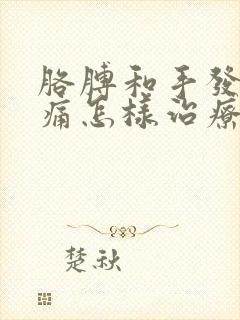 胳膊和手發
痛怎樣治療
楚秋